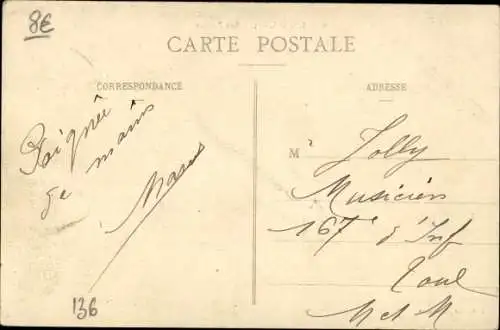 8€
CARTE POSTALE
CORRESPONDANCE
ADRESSE
Poignée
de mains
M Jolly
Musicien
167e d'Inf
Toul
M et M
136